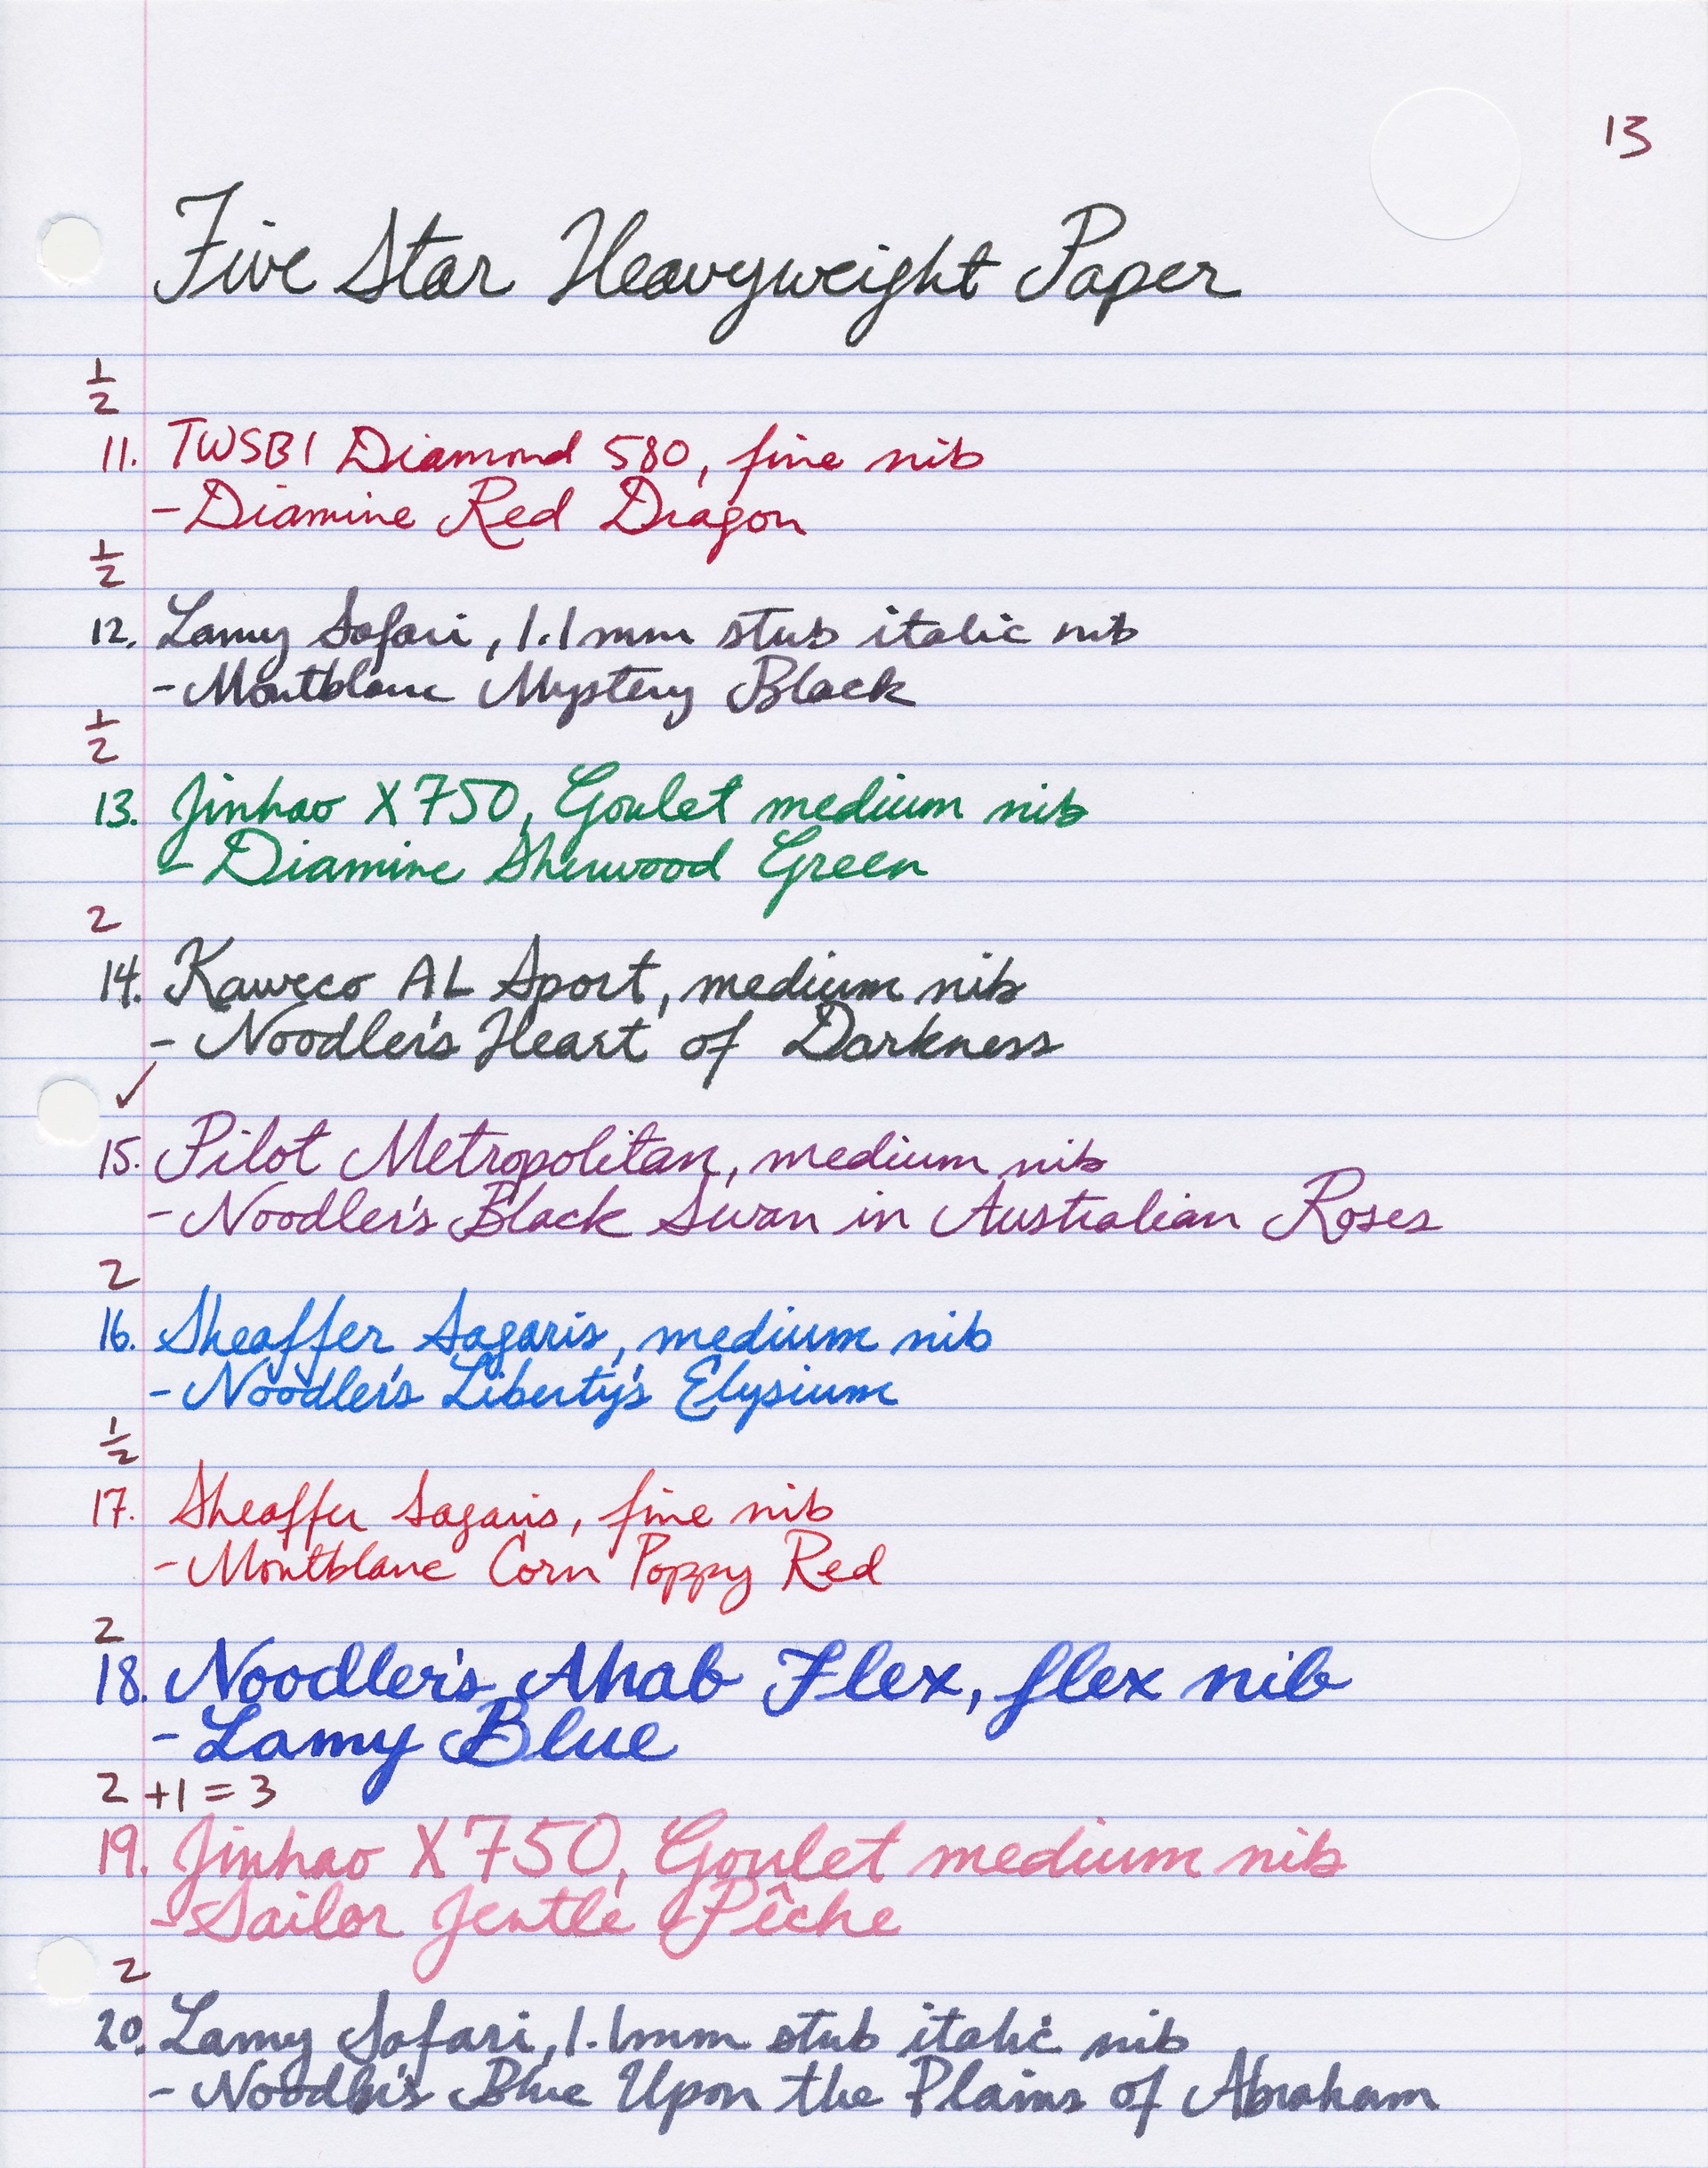 13
Five Star Heavyweight Paper
1/2
11. TWSBI Diamond 580, fine nib
- Diamine Red Dragon
1/2
12. Lamy Safari, 1.1mm stub italic nib
- Montblanc Mystery Black
1/2
13. Jinhao X750, Goulet medium nib
- Diamine Sherwood Green
2
14. Kaweco AL Sport, medium nib
- Noodler's Heart of Darkness
✓
15. Pilot Metropolitan, medium nib
- Noodler's Black Swan in Australian Roses
2
16. Sheaffer Sagaris, medium nib
- Noodler's Liberty's Elysium
1/2
17. Sheaffer Sagaris, fine nib
- Montblanc Corn Poppy Red
2
18. Noodler's Ahab Flex, flex nib
- Lamy Blue
2 +1 = 3
19. Jinhao X750, Goulet medium nib
- Sailor Jentle Pêche
2
20. Lamy Safari, 1.1mm stub italic nib
- Noodler's Blue Upon the Plains of Abraham